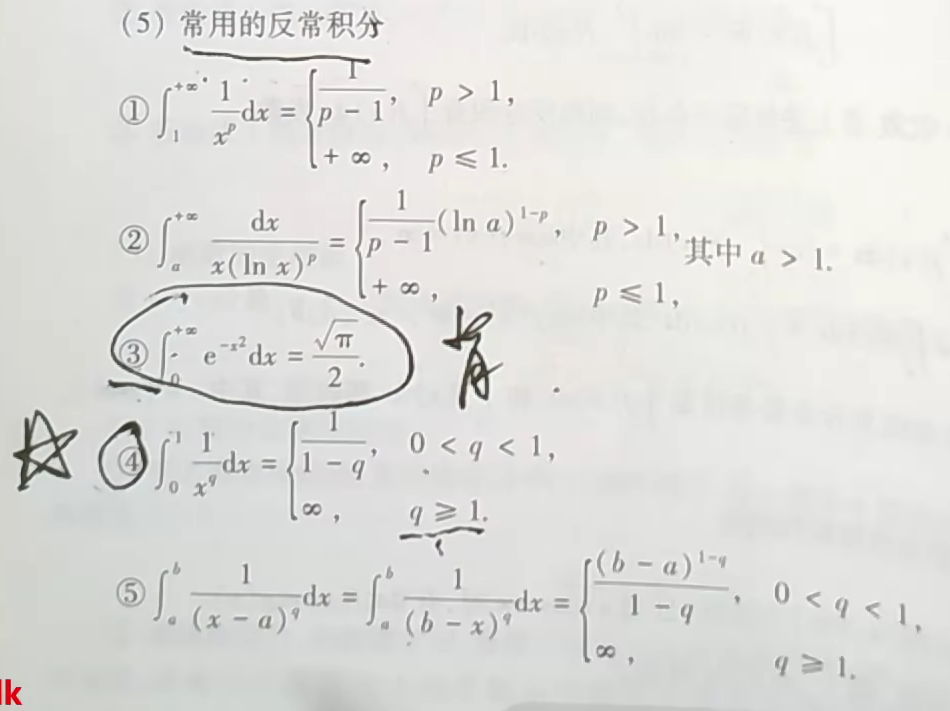 (5) 常用的反常积分
① ∫₁^{+∞} 1/x^p dx = { 1/(p − 1), p > 1, +∞, p ⩽ 1.
② ∫ₐ^{+∞} dx/(x(ln x)^p) = { 1/(p − 1) (ln a)^{1-p}, p > 1, +∞, p ⩽ 1, 其中 a > 1.
③ ∫₀^{+∞} e^{-x²} dx = √π/2.
④ ∫₀^1 1/x^q dx = { 1/(1 − q), 0 < q < 1, ∞, q ⩾ 1.
⑤ ∫ₐ^b 1/(x − a)^q dx = ∫ₐ^b 1/(b − x)^q dx = { (b − a)^{1-q}/(1 − q), 0 < q < 1, ∞, q ⩾ 1.
lk